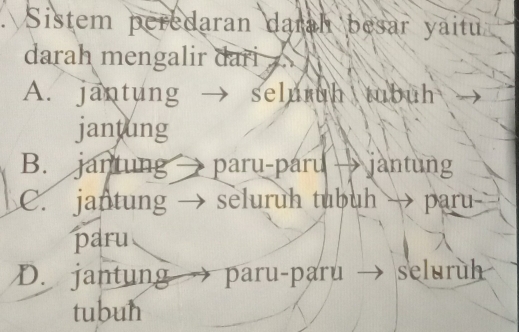 Sistem peredaran darah besar yaitu
darah mengalir dari ...
A. jantung → seluruh tubuh →
jantung
B. jantung → paru-paru → jantung
C. jantung → seluruh tubuh → paru-
paru
D. jantung → paru-paru → seluruh
tubuh